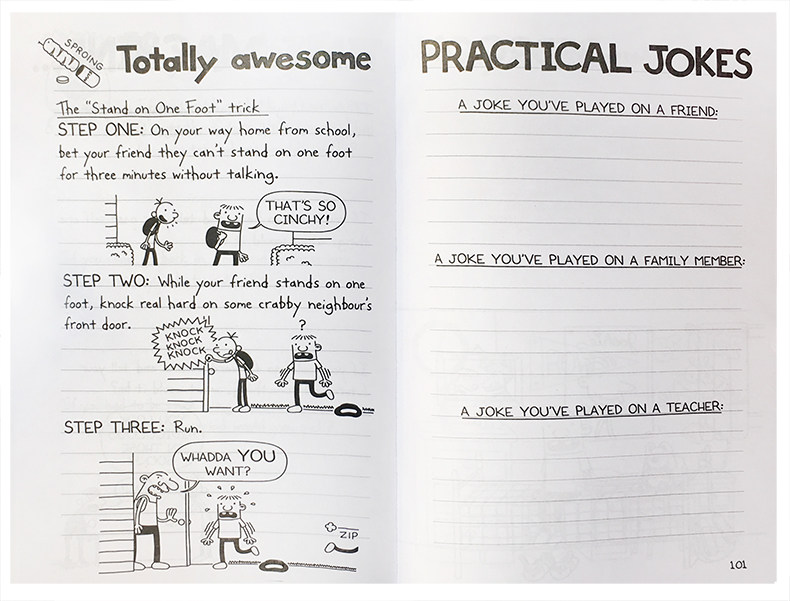 SPROING
Totally awesome
The "Stand on One Foot" trick
STEP ONE: On your way home from school,
bet your friend they can't stand on one foot
for three minutes without talking.
THAT'S SO
CINCHY!
STEP TWO: While your friend stands on one
foot, knock real hard on some crabby neighbour's
front door.
KNOCK
KNOCK
KNOCK
?
STEP THREE: Run.
WHADDA YOU
WANT?
ZIP
PRACTICAL JOKES
A JOKE YOU'VE PLAYED ON A FRIEND:
A JOKE YOU'VE PLAYED ON A FAMILY MEMBER:
A JOKE YOU'VE PLAYED ON A TEACHER:
101